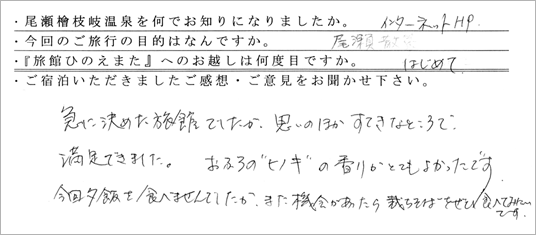 ・尾瀬檜枝岐温泉を何でお知りになりましたか。 インターネットHP
・今回のご旅行の目的はなんですか。 尾瀬
・『旅館ひのえまた』へのお越しは何度目ですか。 はじめて
・ご宿泊いただきましたご感想・ご意見をお聞かせ下さい。
急に決めた旅館でしたが、思いのほかすてきなところで、
満足できました。 おふろの"ヒノキ"の香りがとてもよかったです
今回夕飯を食べませんでしたが、また機会があったら裁ちそばをぜひ食べてみたい
です。